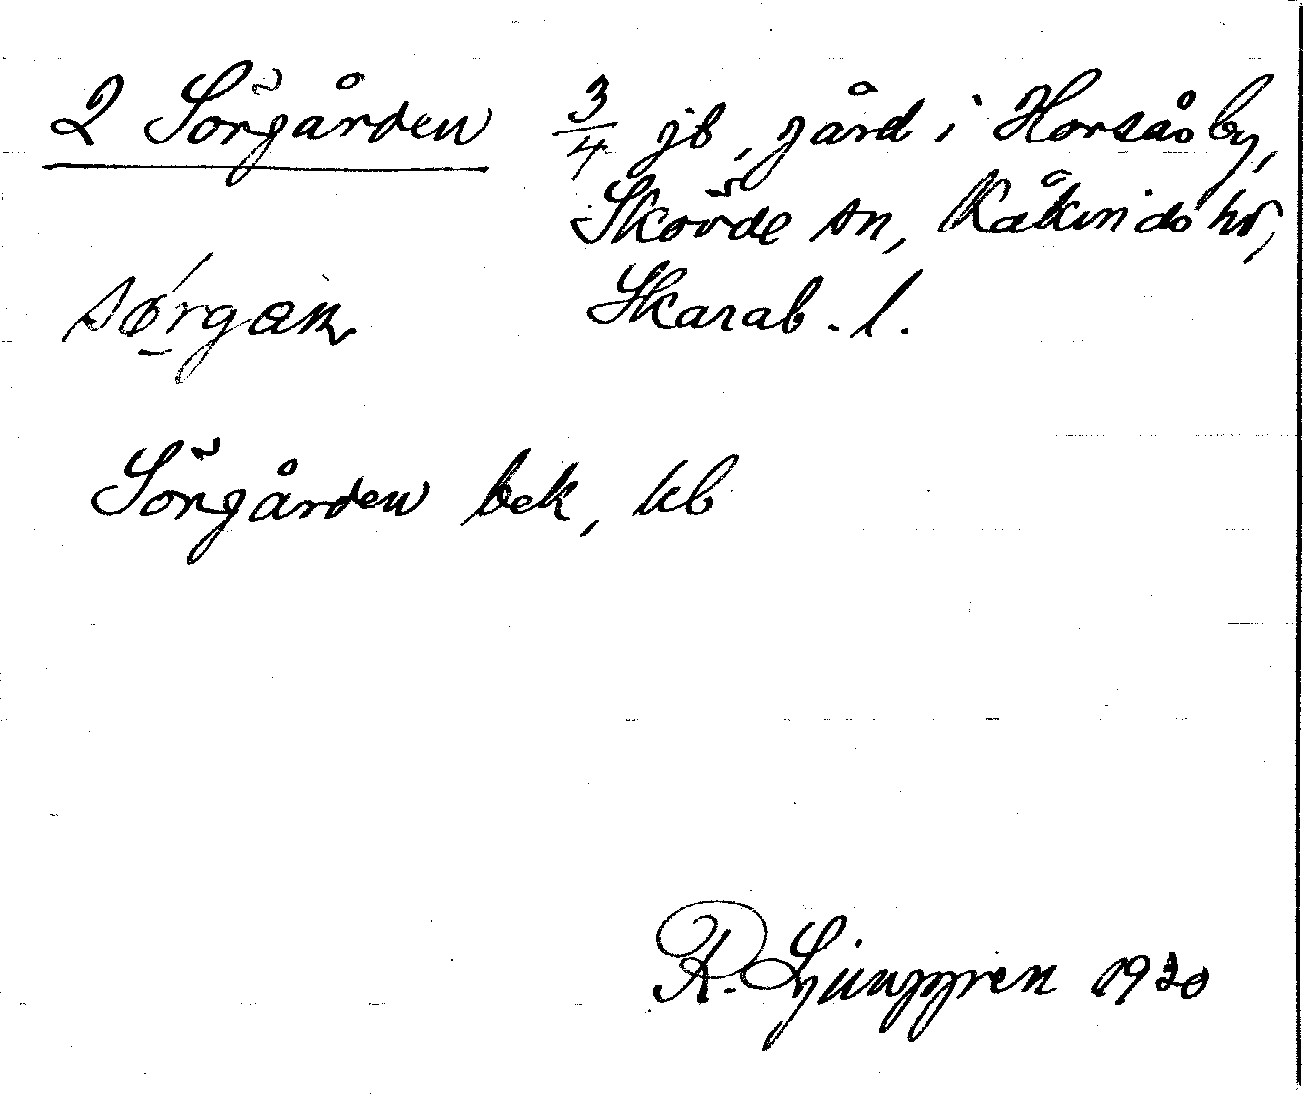 2 Sörgården 3/4 jb, gård i Horsås by,
Skövde sn, Kåkinds hd,
Skarab. l.
sørgan
Sörgården bek, kb
R. Ljunggren 1930